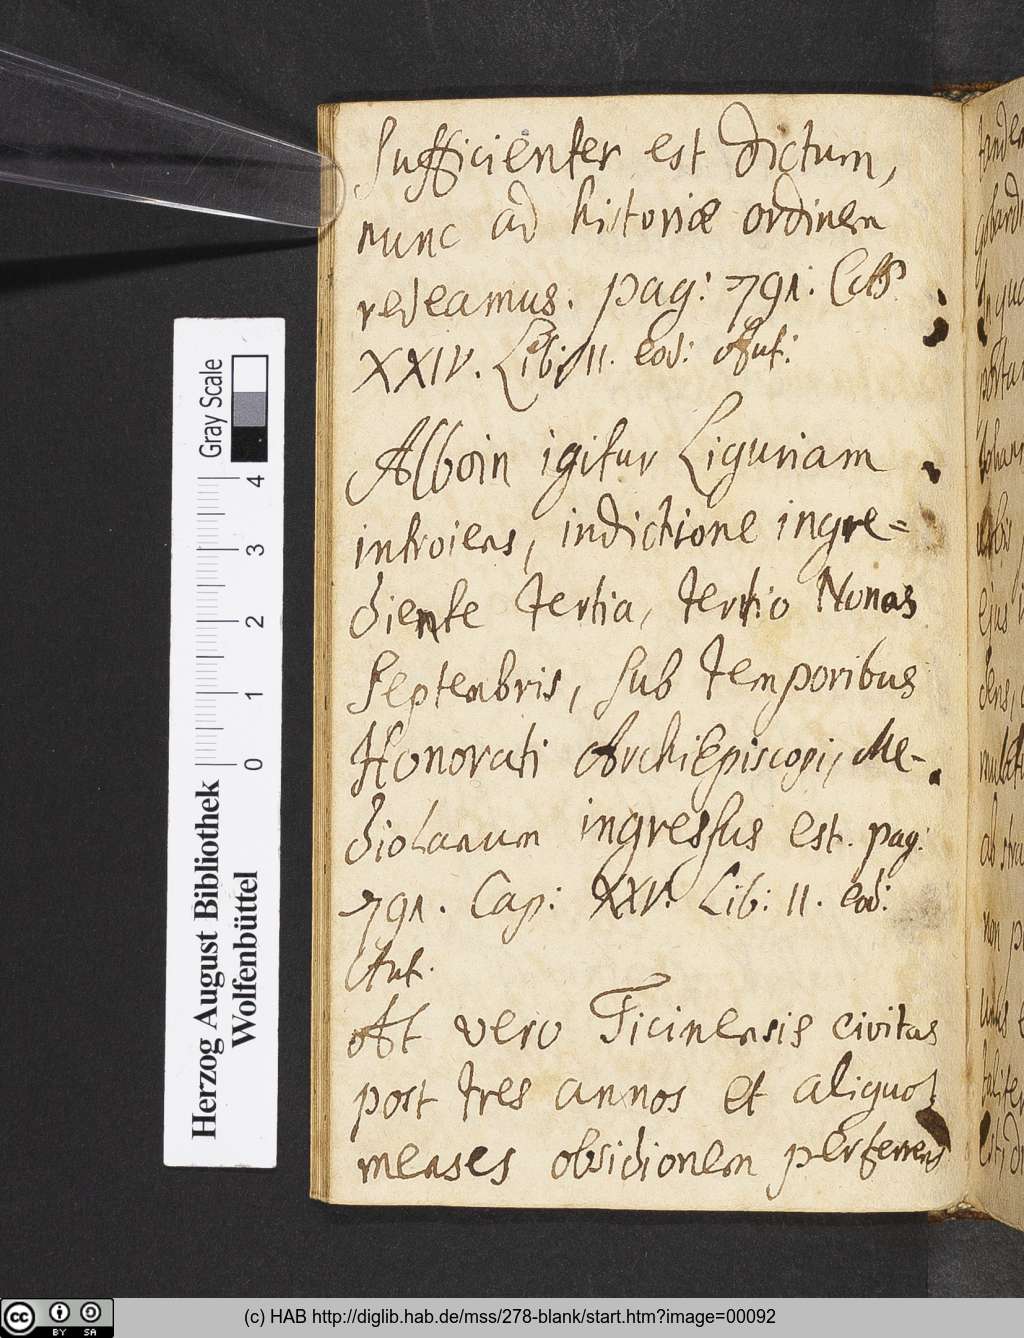 Sufficienter est dictum,
nunc ad historiæ ordinem
redeamus. pag: 791.
XXIV. Lib: II. eod: Aut:
Alboin igitur Liguriam
introiens, indictione ingre=
diente tertia, tertio Nonas
Septembris, sub temporibus
Honorati ArchiEpiscopi, Me-
diolanum ingressus est. pag:
791. Cap: XXV. Lib: II. eod:
Aut.
At vero Ticinensis civitas
post tres annos et aliquot
menses obsidionem perferens
Gray Scale
4
3
2
1
0
Herzog August Bibliothek
Wolfenbüttel
(c) HAB http://diglib.hab.de/mss/278-blank/start.htm?image=00092
cc BY SA